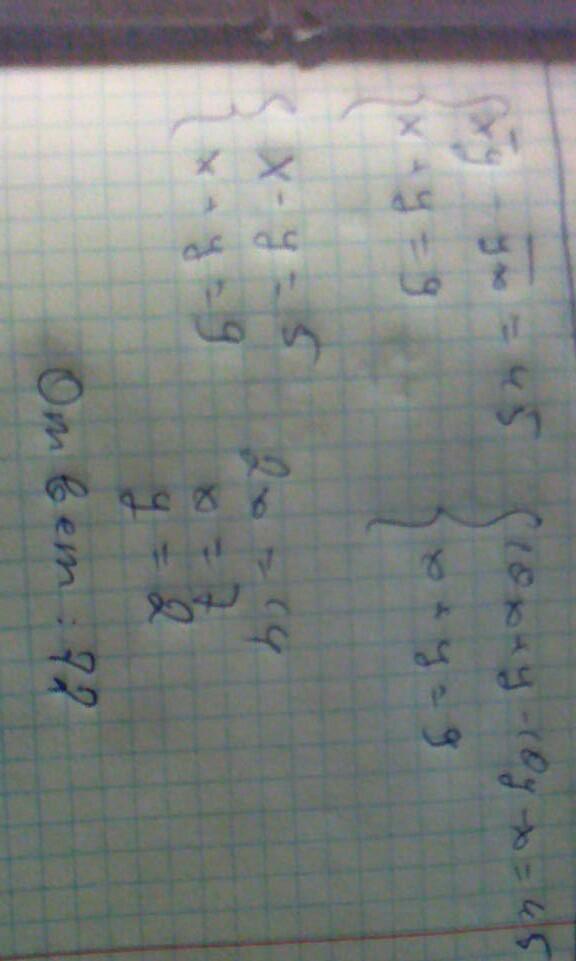 { x̅y̅ - y̅x̅ = 45 { 10x + y - 10y - x = 45
{ x + y = 9 { x + y = 9
{ x - y = 5 2x = 14
{ x + y = 9 x = 7
y = 2
Ответ: 72